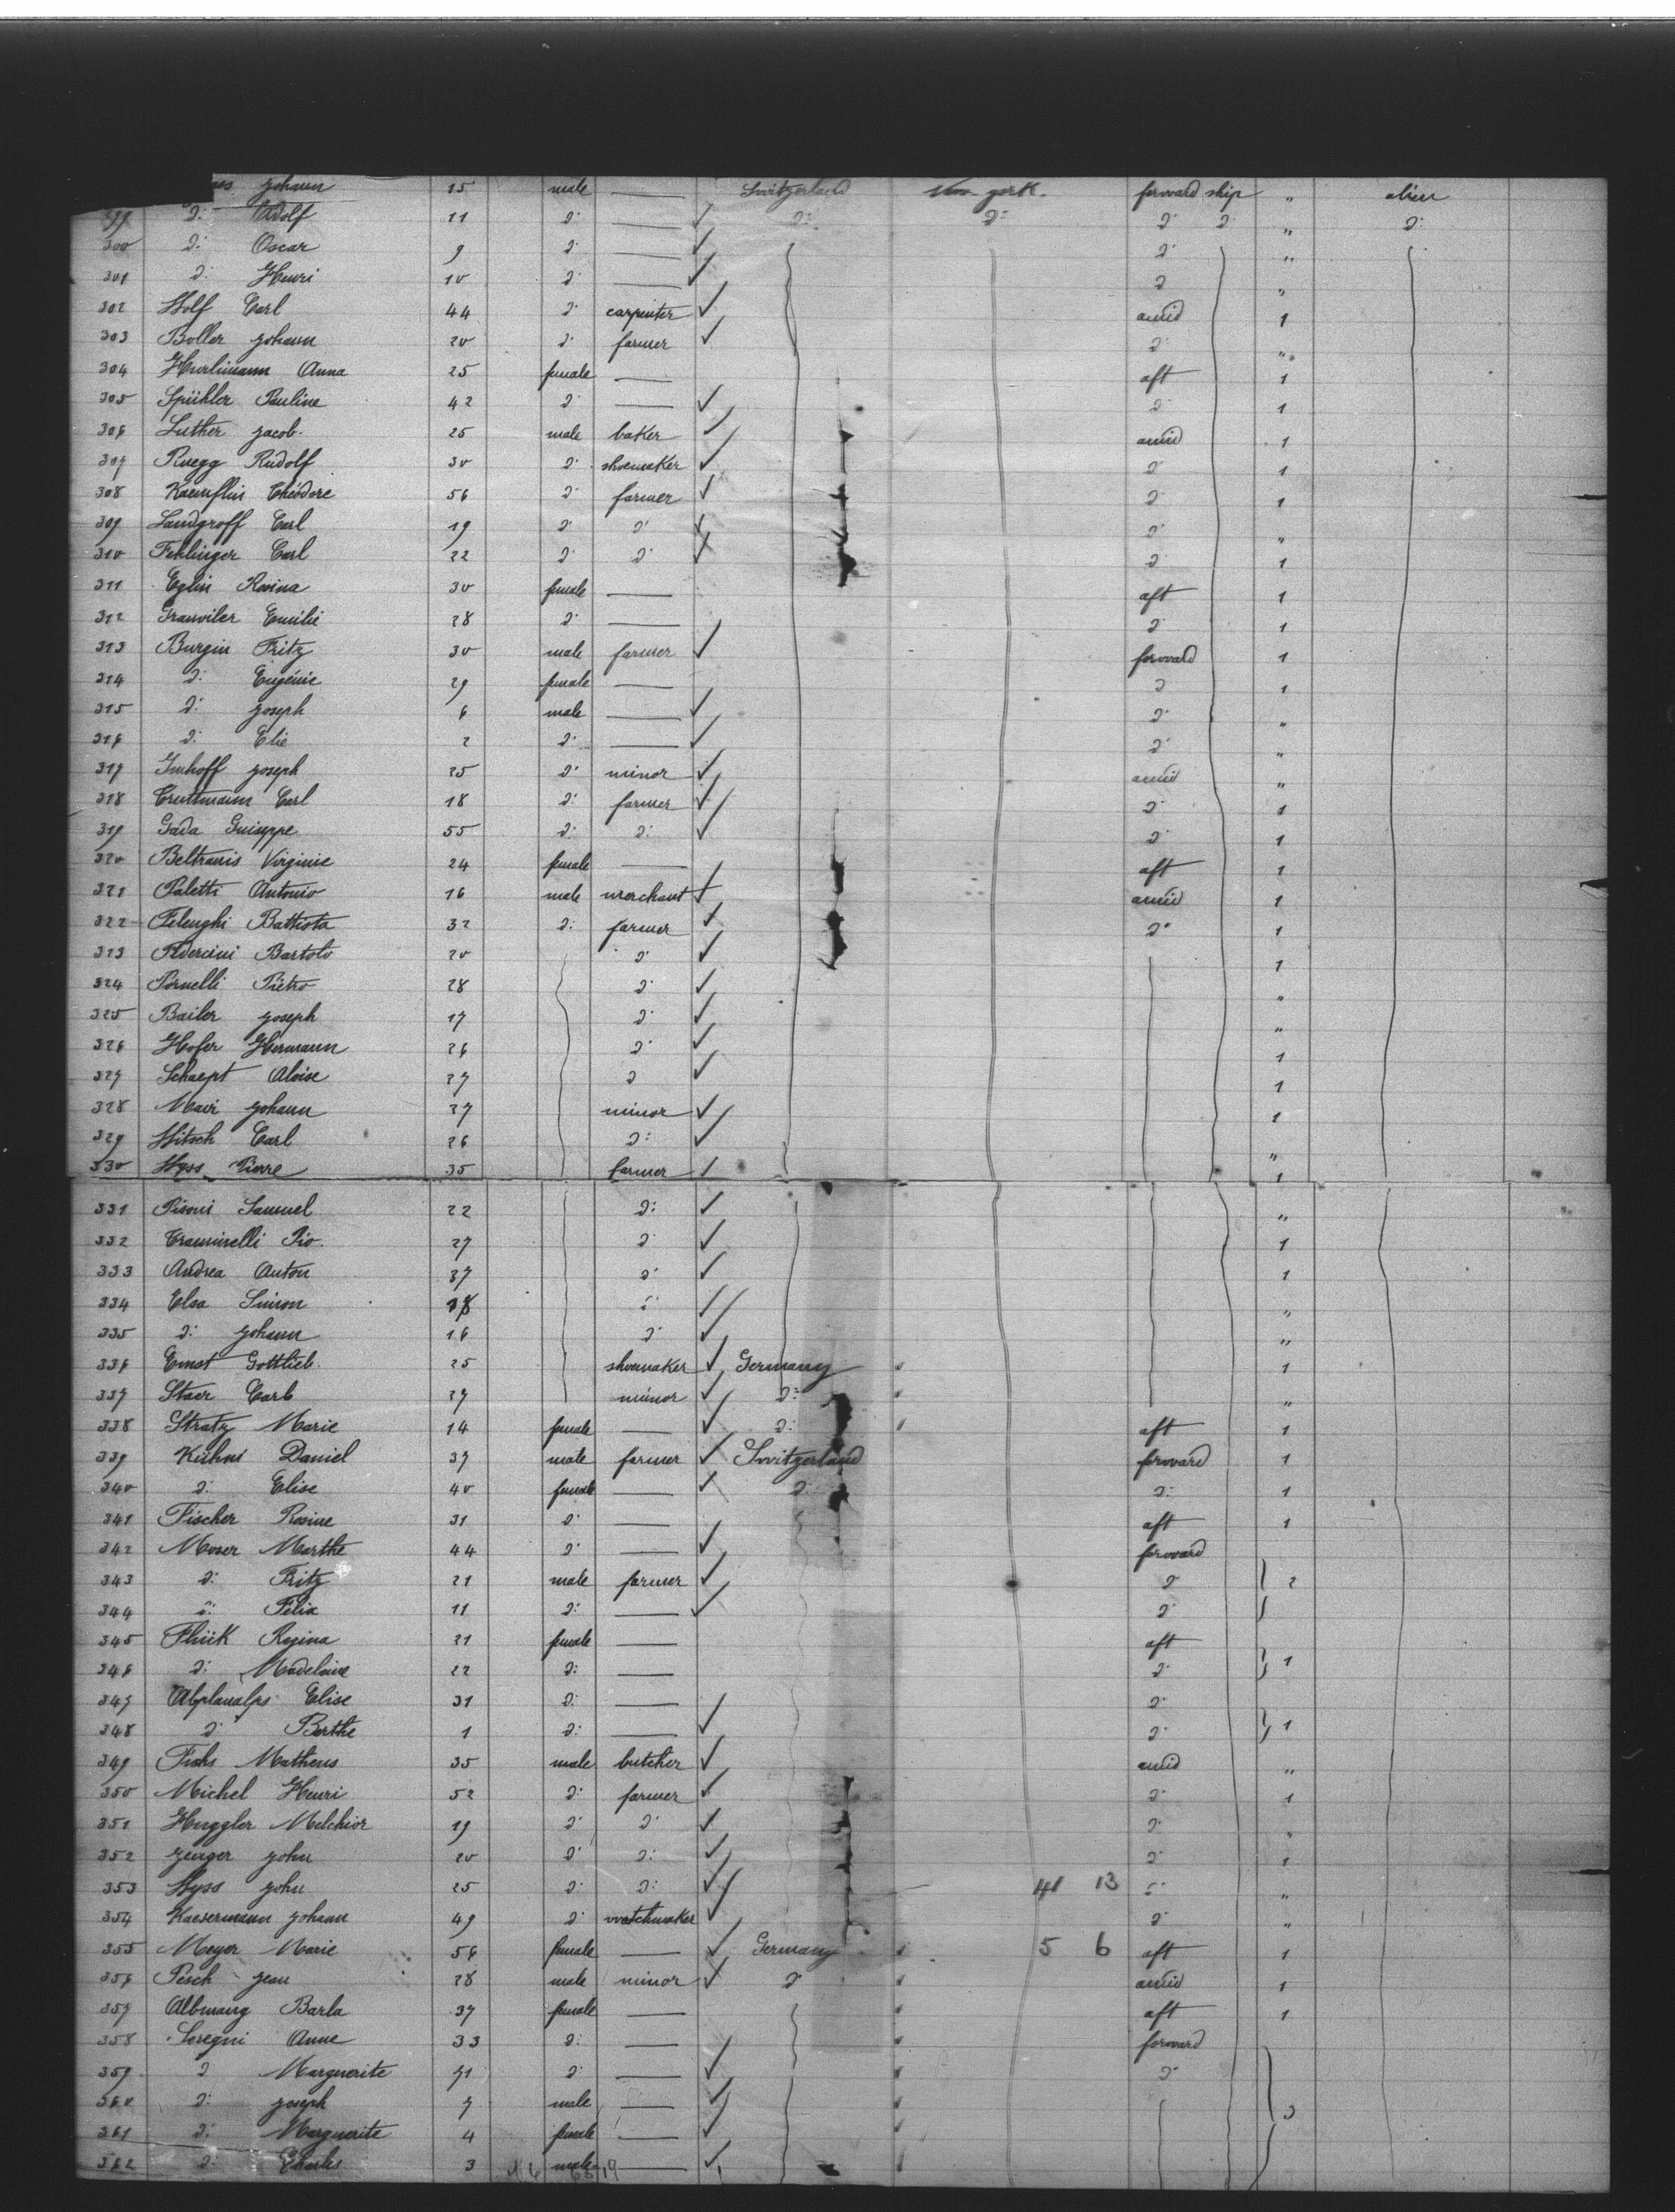 Johann 15 male — Switzerland New York. forward ship " alien
299 d: Adolf 11 d: — d: d: d: d: " d:
300 d: Oscar 9 d: — d: "
301 d: Henri 10 d: — d "
302 Wolf Carl 44 d: carpenter amid 1
303 Boller Johann 20 d: farmer d: "
304 Hurlimann Anna 25 female — aft 1
305 Spühler Pauline 42 d: — d: 1
306 Luther Jacob. 25 male baker amid 1
307 Ruegg Rudolf 30 d: shoemaker d: 1
308 Kaemflin Théodore 56 d: farmer d: 1
309 Landgroff Carl 19 d: d: d: "
310 Fehlinger Carl 22 d: d: d: 1
311 Eglin Rosina 30 female — aft 1
312 Granviler Emilie 28 d: — d: 1
313 Burgin Fritz 30 male farmer forward 1
314 d: Eugénie 29 female — d 1
315 d: Joseph 6 male — d: "
316 d: Elie 2 d: — d: "
317 Imhoff Joseph 25 d: minor amid "
318 Truttmann Carl 18 d: farmer d: 1
319 Gada Guiseppe 55 d: d: d: 1
320 Beltramis Virginie 24 female — aft 1
321 Paletti Antonio 16 male merchant amid 1
322 Felenghi Battista 32 d: farmer d: 1
323 Pedercini Bartolo 20 d: 1
324 Pornelli Piétro 28 d: "
325 Bailer Joseph 17 d: "
326 Hofer Hermann 26 d: 1
327 Schaept Aloise 27 d 1
328 Mair Johann 27 minor 1
329 Witsch Carl 26 d: "
330 Wyss Pierre 35 farmer 1
331 Pisoni Samuel 22 d: "
332 Traminelli Pio. 27 d: 1
333 Andrea Anton 37 d: 1
334 Elsa Simon 18 d: "
335 d: Johann 16 d: "
336 Ernst Gottlieb. 25 shoemaker Germany 1
337 Staer Carl 27 minor d: "
338 Stratz Marie 14 female — d: aft 1
339 Kühni Daniel 37 male farmer Switzerland forward 1
340 d: Elise 40 female — d: d: 1
341 Fischer Rosine 31 d: — aft 1
342 Moser Marthe 44 d: — forward
343 d: Fritz 21 male farmer d: 2
344 d: Félix 11 d: — d:
345 Flück Regina 21 female — aft
346 d: Madelaine 22 d: — d: 1
347 Abplanalps Elise 31 d: — d:
348 d: Berthe 1 d: — d: 1
349 Fuhs Matheus 35 male butcher amid "
350 Michel Henri 52 d: farmer d: 1
351 Huggler Melchior 19 d: d: d: "
352 Zenger John 20 d: d: d: 1
353 Wyss John 25 d: d: 41 13 d: "
354 Kaesermann Johann 49 d: watchmaker d: "
355 Meyer Marie 56 female — Germany 5 6 aft 1
356 Pesch Jean 28 male minor d: amid 1
357 Albmang Barla 37 female — aft 1
358 Seregni Anne 33 d: — forward
359 d Marguerite 71 d: — d:
360 d: Joseph 7 male — 3
361 d: Marguerite 4 female —
362 d: Charles 3 male —